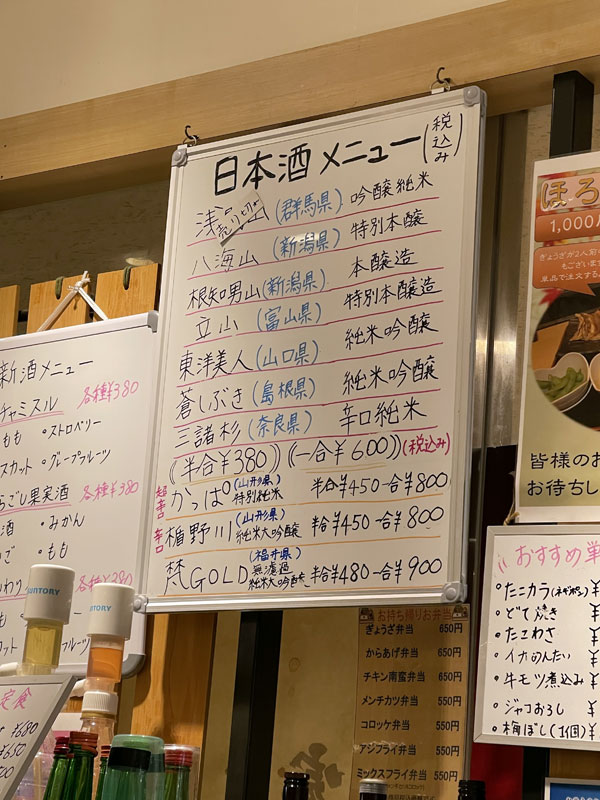 日本酒メニュー(税込み)
浅間山(群馬県) 吟醸純米
売り切れ
八海山(新潟県) 特別本醸
根知男山(新潟県) 本醸造
立山(富山県) 特別本醸造
東洋美人(山口県) 純米吟醸
蒼しぶき(島根県) 純米吟醸
三諸杉(奈良県) 辛口純米
(半合¥380)(一合¥600)(税込み)
超辛口 かっぱ(山形県)特別純米 半合¥450 一合¥800
辛口 楯野川(山形県)純米大吟醸 半合¥450 一合¥800
梵GOLD(福井県)無濾過純米大吟醸 半合¥480 一合¥900
新酒メニュー
チャミスル 各種¥380
もも •ストロベリー
スカット •グレープフルーツ
らごし果実酒 各種¥380
酒 •みかん
ご •もも
わり
フルーツ
SUNTORY
SUNTORY
定食
¥680
¥650
ほろ
1,000
ぎょうざが2人前
単品で注文する
皆様のお
お待ちし
お持ち帰りお弁当
ぎょうざ弁当 650円
からあげ弁当 650円
チキン南蛮弁当 650円
メンチカツ弁当 550円
コロッケ弁当 550円
アジフライ弁当 550円
ミックスフライ弁当 550円
おすすめ
•たこカラ ¥
•どて焼き ¥
•たこわさ ¥
•イカめんたい ¥
•牛モツ煮込み ¥
•ジャコおろし ¥
•梅ぼし(1個) ¥